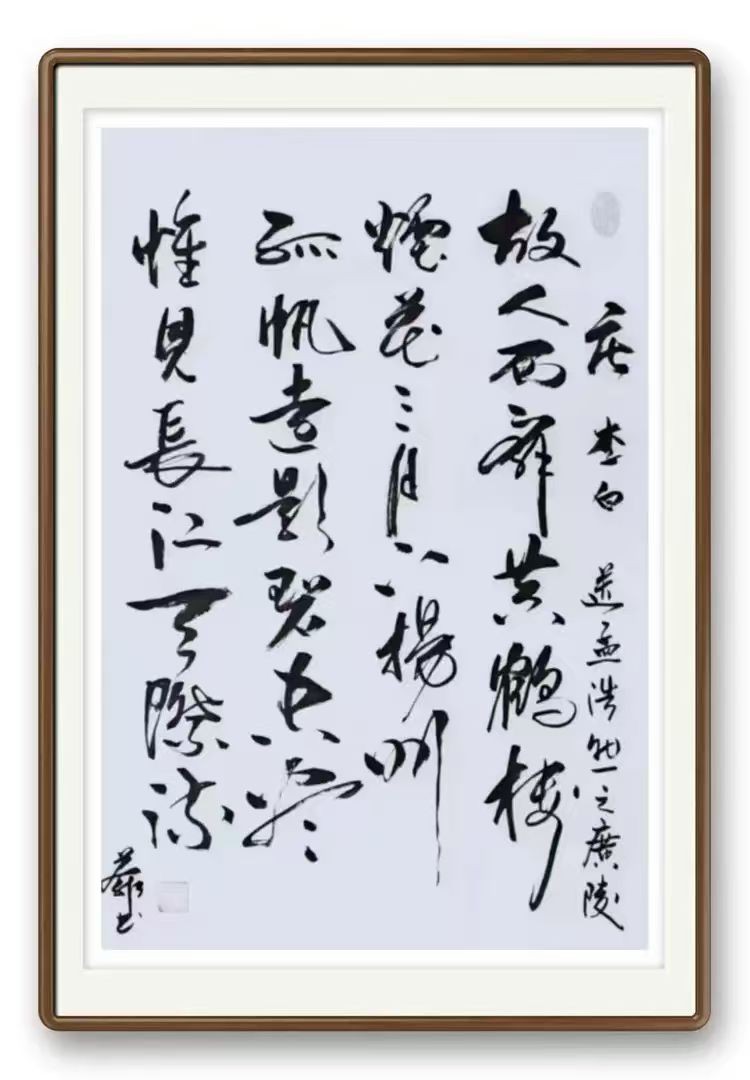 唐 李白 送孟浩然之廣陵
故人西辞黄鶴楼
煙花三月下楊州
孤帆遠影碧空尽
惟見長江天際流
书